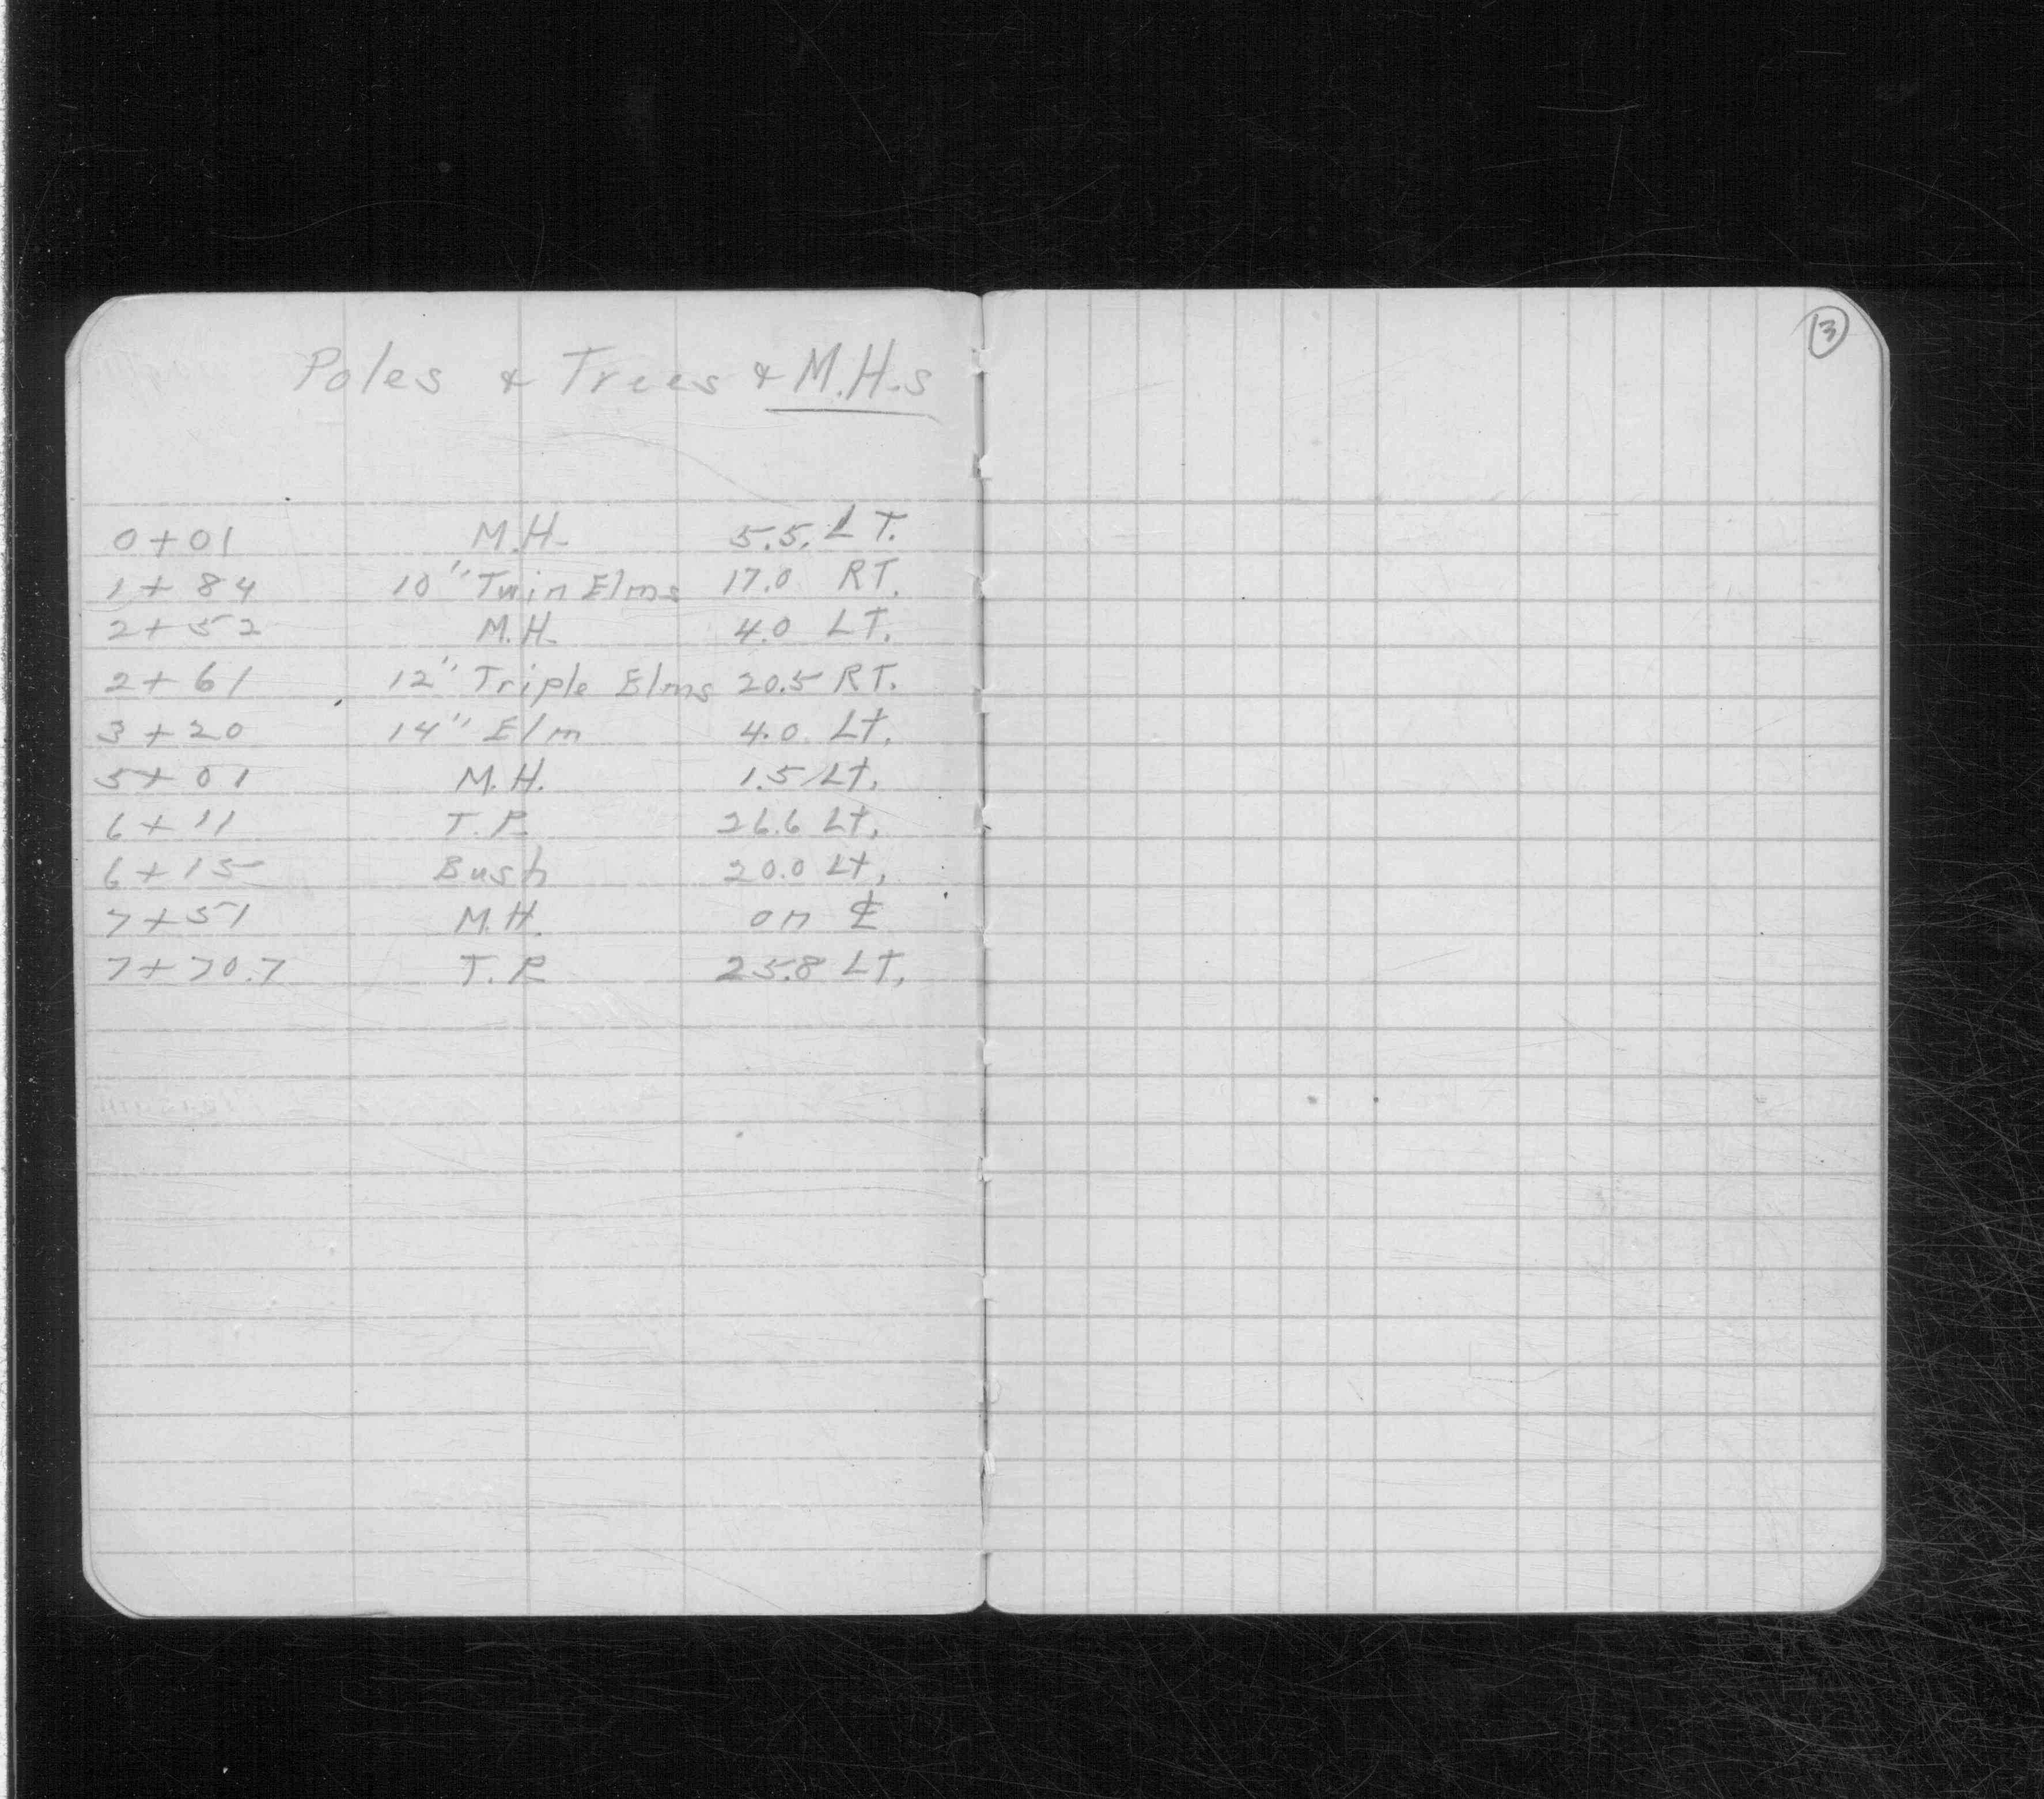 Poles & Trees & M.H.s
3
0+01 M.H. 5.5. LT.
1+84 10" Twin Elms 17.0 RT.
2+52 M.H. 4.0 LT.
2+61 12" Triple Elms 20.5 RT.
3+20 14" Elm 4.0 Lt.
5+01 M.H. 1.5 Lt.
6+11 T.P. 26.6 Lt.
6+15 Bush 20.0 Lt.
7+51 M.H. on ℄
7+70.7 T.P. 25.8 LT.